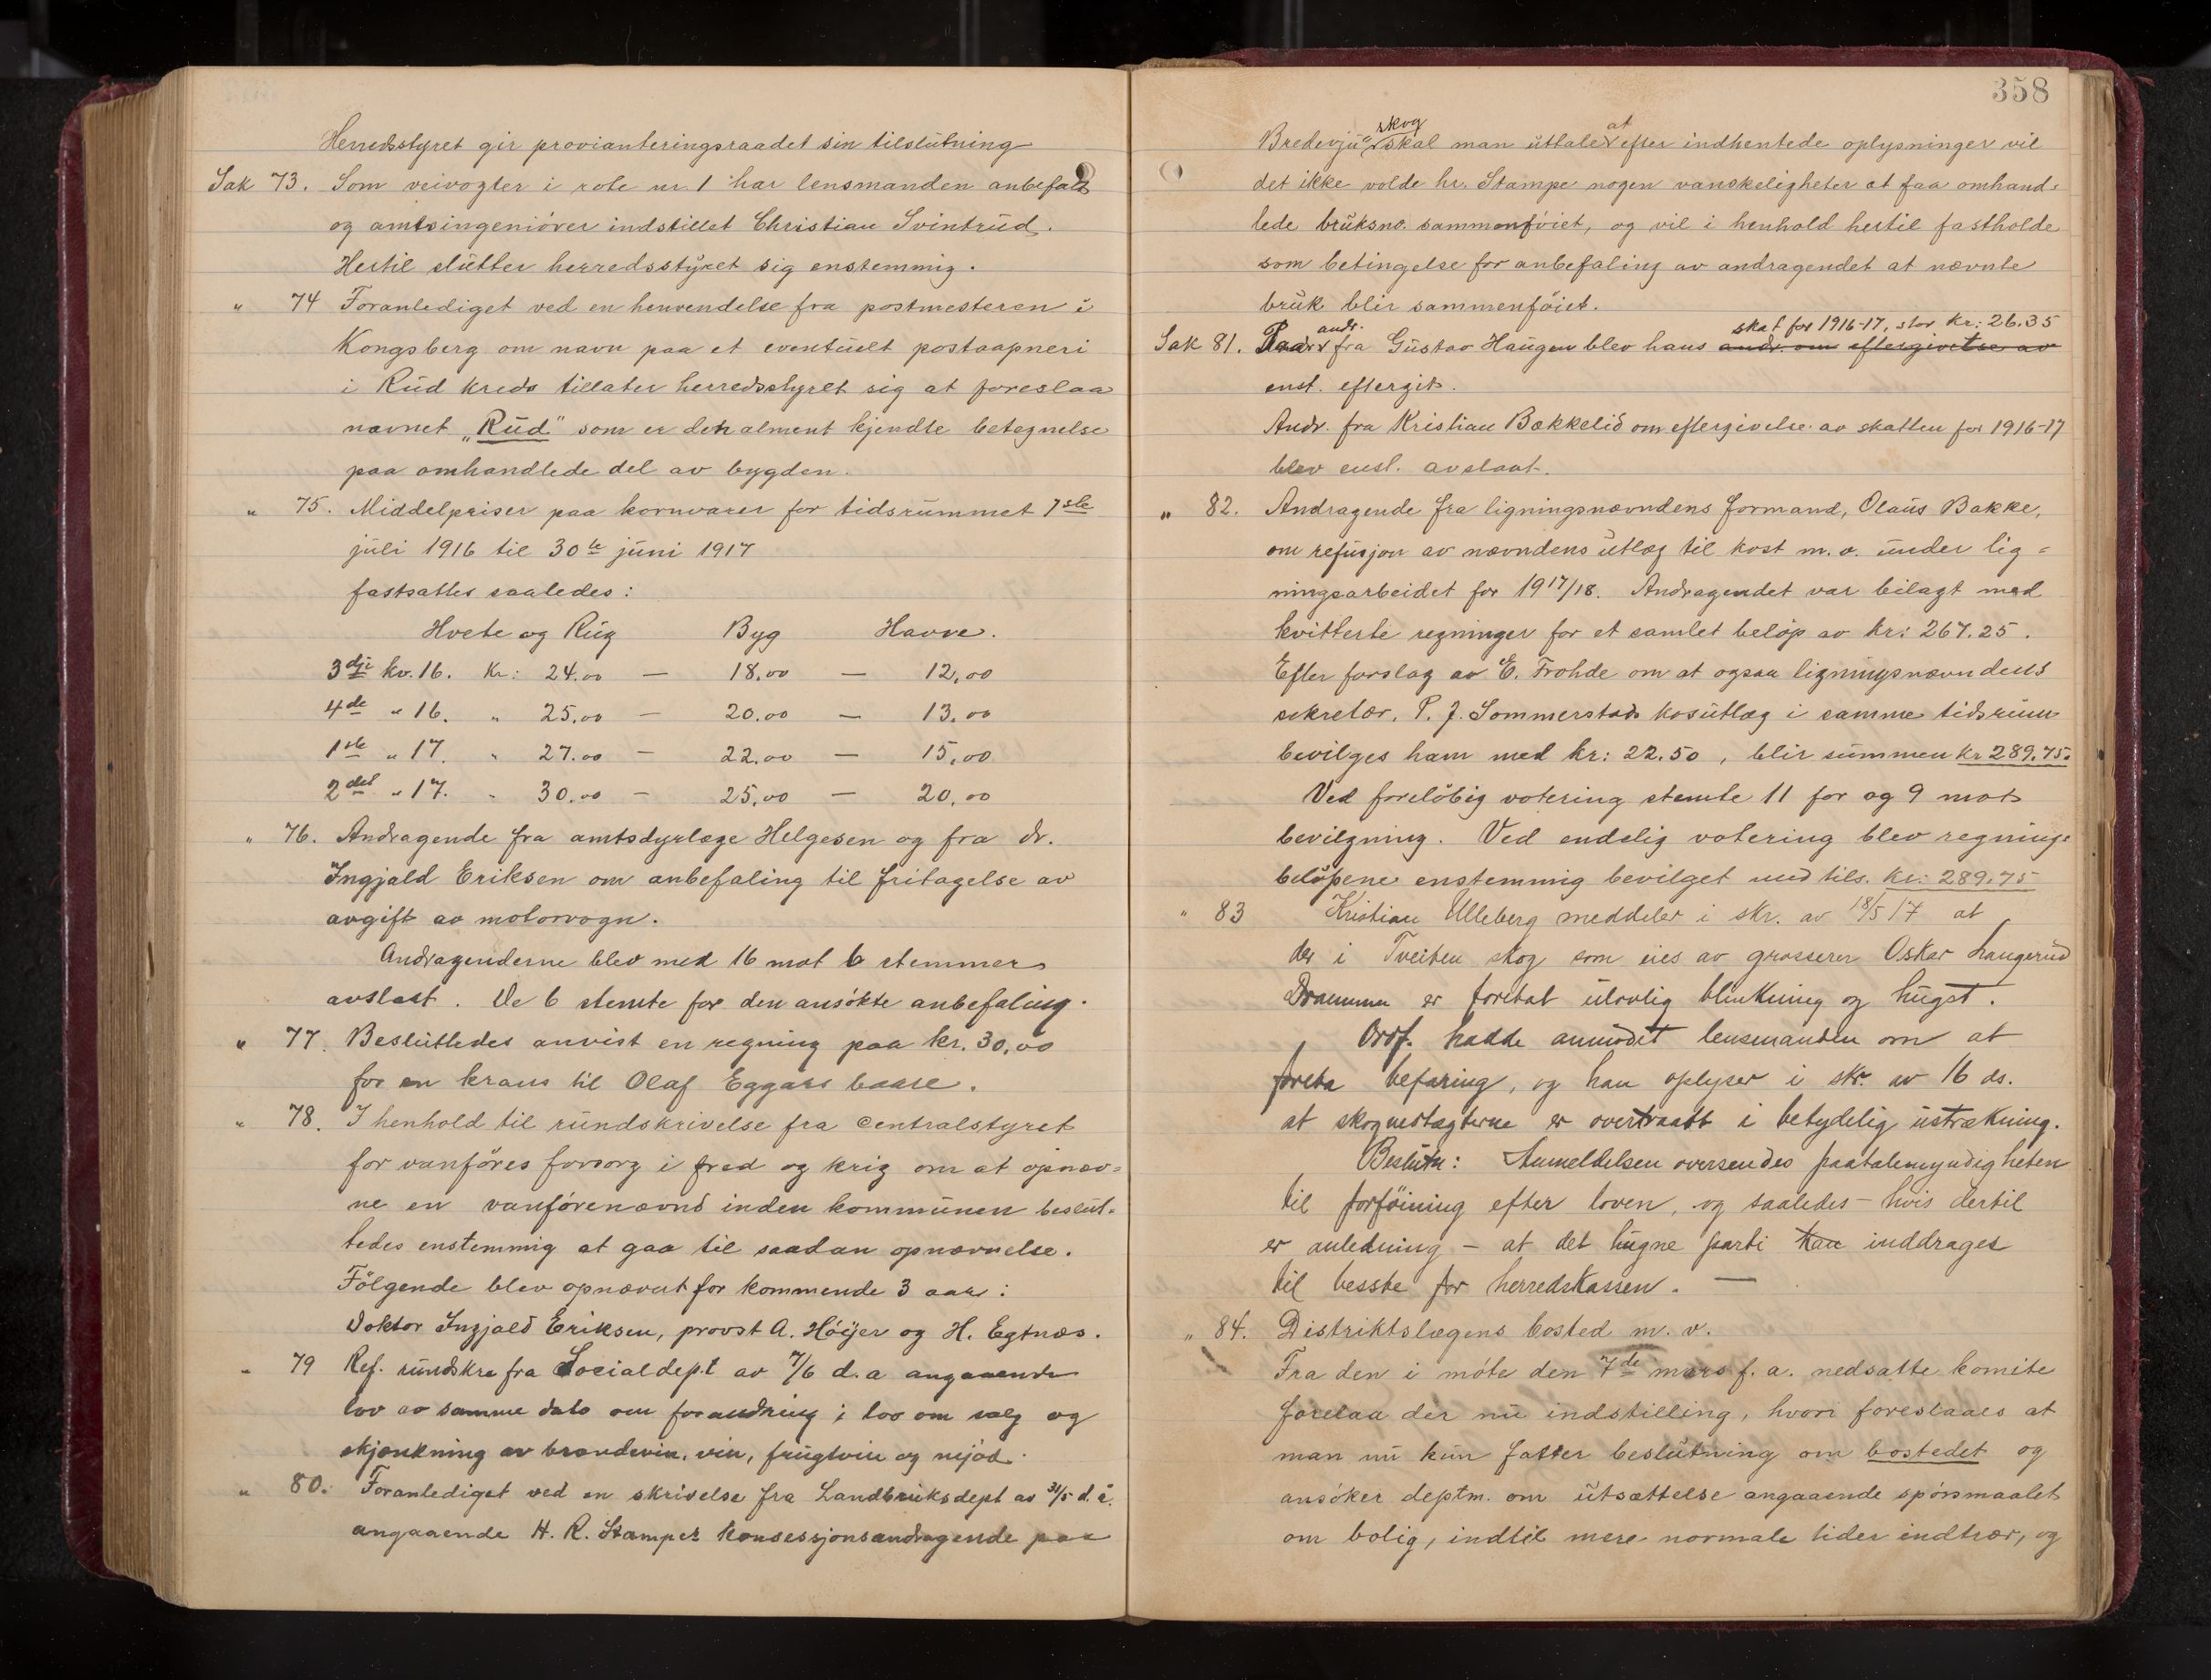 Herredsstyret gir provianteringsraadet sin tilslutning
Sak 73. Som veivogter i rote nr. 1 har lensmanden anbefalt
og amtsingeniören indstillet Christian Svintrud.
Hertil slutter herredsstyret sig enstemmig.
" 74 Foranlediget ved en henvendelse fra postmesteren i
Kongsberg om navn paa et eventuelt postaapneri
i Rud kreds tillater herredsstyret sig at foreslaa
navnet "Rud" som er den alment kjendte betegnelse
paa omhandlede del av bygden.
" 75. Middelpriser paa kornvarer for tidsrummet 1ste
juli 1916 til 30te juni 1917
fastsattes saaledes:
Hvete og Rug Byg Havre.
3dje kv. 16. Kr: 24.00 — 18.00 — 12,00
4de " 16. " 25.00 — 20.00 — 13.00
1ste " 17. " 27.00 — 22.00 — 15,00
2det " 17. " 30.00 — 25,00 — 20,00
" 76. Andragende fra amtsdyrlæge Helgesen og fra dr.
Ingjald Eriksen om anbefaling til fritagelse av
avgift av motorvogn.
Andragenderne blev med 16 mot 6 stemmer
avslaat. De 6 stemte for den ansökte anbefaling.
" 77. Besluttedes anvist en regning paa kr. 30,00
for en krans til Olaf Eggars baare.
" 78. I henhold til rundskrivelse fra Centralstyret
for vanföres forsorg i fred og krig om at opnæv-
ne en vanförenævnd inden kommunen beslut-
tedes enstemmig at gaa til saadan opnævnelse.
Fölgende blev opnævnt for kommende 3 aar:
Doktor Ingjald Eriksen, provst A. Höyer og H. Egtnæs.
" 79 Ref. rundskr. fra Socialdept av 7/6 d.a angaaende
lov av samme dato om forandring i lov om salg og
skjænkning av brændevin, vin, frugtvin og mjöd.
" 80. Foranlediget ved en skrivelse fra Landbruksdept av 31/5 d. å.
angaaende H. R. Stampes konsessjonsandragende paa
358
Bredevju skog skal man uttale at efter indhentede oplysninger vil
det ikke volde hr. Stampe nogen vanskeligheter at faa omhand-
lede bruksno. sammenföiet, og vil i henhold hertil fastholde
som betingelse for anbefaling av andragendet at nævnte
bruk blir sammenföiet.
Sak 81. Paa andr. fra Gustav Haugen blev hans andr. om eftergivelse av skat for 1916-17, stor kr: 26.35
enst. eftergit.
Andr. fra Kristian Bækkelid om eftergivelse av skatten for 1916-17
blev enst. avslaat.
" 82. Andragende fra ligningsnævndens formand, Olaus Bakke,
om refusjon av nævndens utlæg til kost m. v. under lig-
ningsarbeidet for 1917/18. Andragendet var bilagt med
kvitterte regninger for et samlet belöp av kr: 267.25.
Efter forslag av E. Frohde om at ogsaa ligningsnævndens
sekretær, P. J. Sommerstads kosutlæg i samme tidsrum
bevilges ham med kr: 22.50, blir summen kr 289.75.
Ved forelöbig votering stemte 11 for og 9 mot
bevilgning. Ved endelig votering blev regnings-
belöpene enstemmig bevilget med tils. kr: 289.75
" 83 Kristian Ulleberg meddeler i skr. av 18/5 17 at
der i Tveiten skog som eies av grosserer Oskar Haugerud
Drammen er foretat ulovlig blinkning og hugst.
Ordf. hadde anmodet lensmanden om at
foreta befaring, og han oplyser i skr. av 16 ds.
at skogvedtægterne er overtraatt i betydelig utstrækning.
Beslutn: Anmeldelsen oversendes paatalemyndigheten
til forföining efter loven, og saaledes — hvis dertil
er anledning — at det hugne parti kan inddrages
til besste for herredskassen. —
" 84. Distriktslægens bosted m. v.
Fra den i möte den 7de mars f. a. nedsatte komite
forelaa der nu indstilling, hvori foreslaaes at
man nu kun fatter beslutning om bostedet og
ansöker deptm. om utsættelse angaaende spörsmaalet
om bolig, indtil mere normale tider indtrær, og